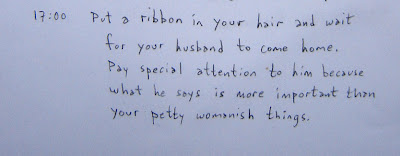 17:00 Put a ribbon in your hair and wait
for your husband to come home.
Pay special attention to him because
what he says is more important than
your petty womanish things.